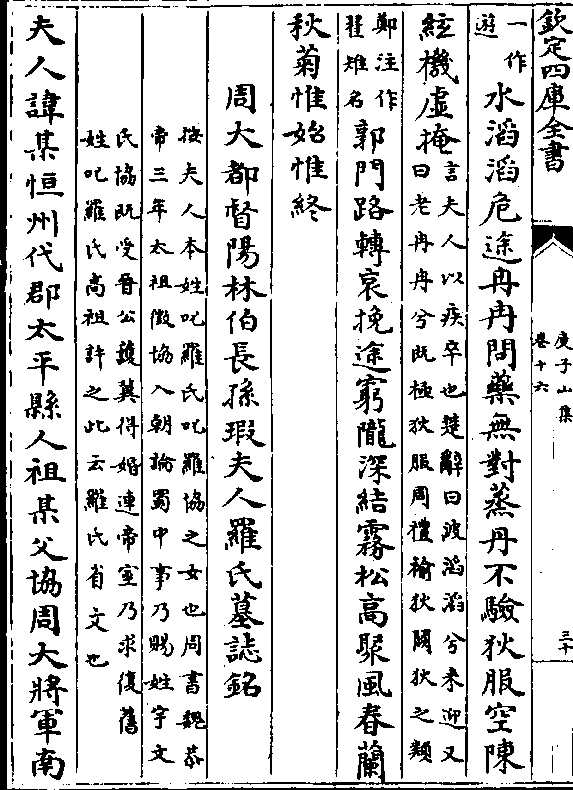 欽定四庫全書
庾子山集
卷十六
三十
一作
遊
水滔滔危途冉冉問藥無對蒸丹不驗狄服空陳
絃機虛掩
言夫人以疾卒也楚辭曰波滔滔兮來迎又
曰老冉冉兮既極狄服周禮褕狄闕狄之類
鄭注作
翟雉名
郭門路轉哀挽途窮隴深結霧松高聚風春蘭
秋菊惟始惟終
周大都督陽林伯長孫瑕夫人羅氏墓誌銘
按夫人本姓叱羅氏叱羅協之女也周書魏恭
帝三年太祖徵協入朝論蜀中事乃賜姓宇文
氏協既受晉公護冀得婚連帝室乃求復舊
姓叱羅氏高祖許之此云羅氏省文也
夫人諱某恒州代郡太平縣人祖某父協周大將軍南